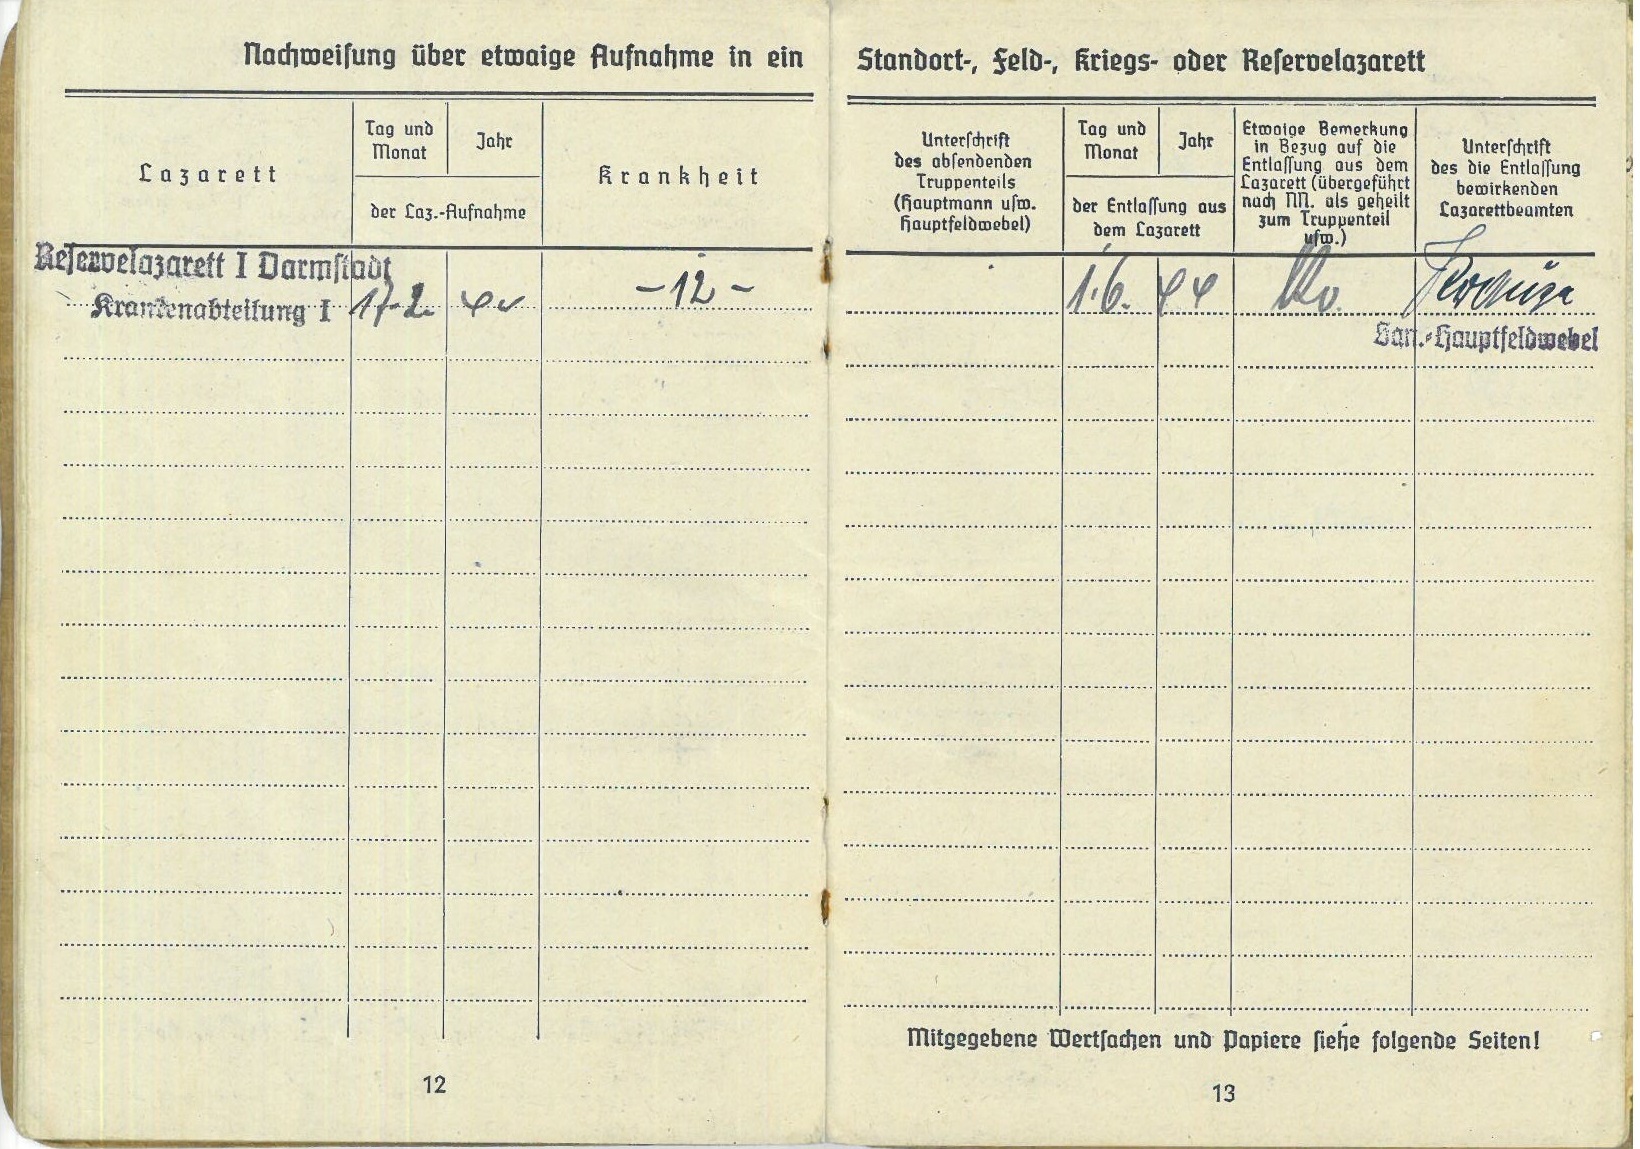 Nachweisung über etwaige Aufnahme in ein
Lazarett
Tag und
Monat
Jahr
der Laz.-Aufnahme
Krankheit
Reservelazarett I Darmstadt
Krankenabteilung I
17.2.
44
-12-
12
Standort-, Feld-, Kriegs- oder Reservelazarett
Unterschrift
des absendenden
Truppenteils
(Hauptmann usw.
Hauptfeldwebel)
Tag und
Monat
Jahr
der Entlassung aus
dem Lazarett
Etwaige Bemerkung
in Bezug auf die
Entlassung aus dem
Lazarett (übergeführt
nach NN. als geheilt
zum Truppenteil
usw.)
Unterschrift
des die Entlassung
bewirkenden
Lazarettbeamten
1.6.
44
San.-Hauptfeldwebel
Mitgegebene Wertsachen und Papiere siehe folgende Seiten!
13